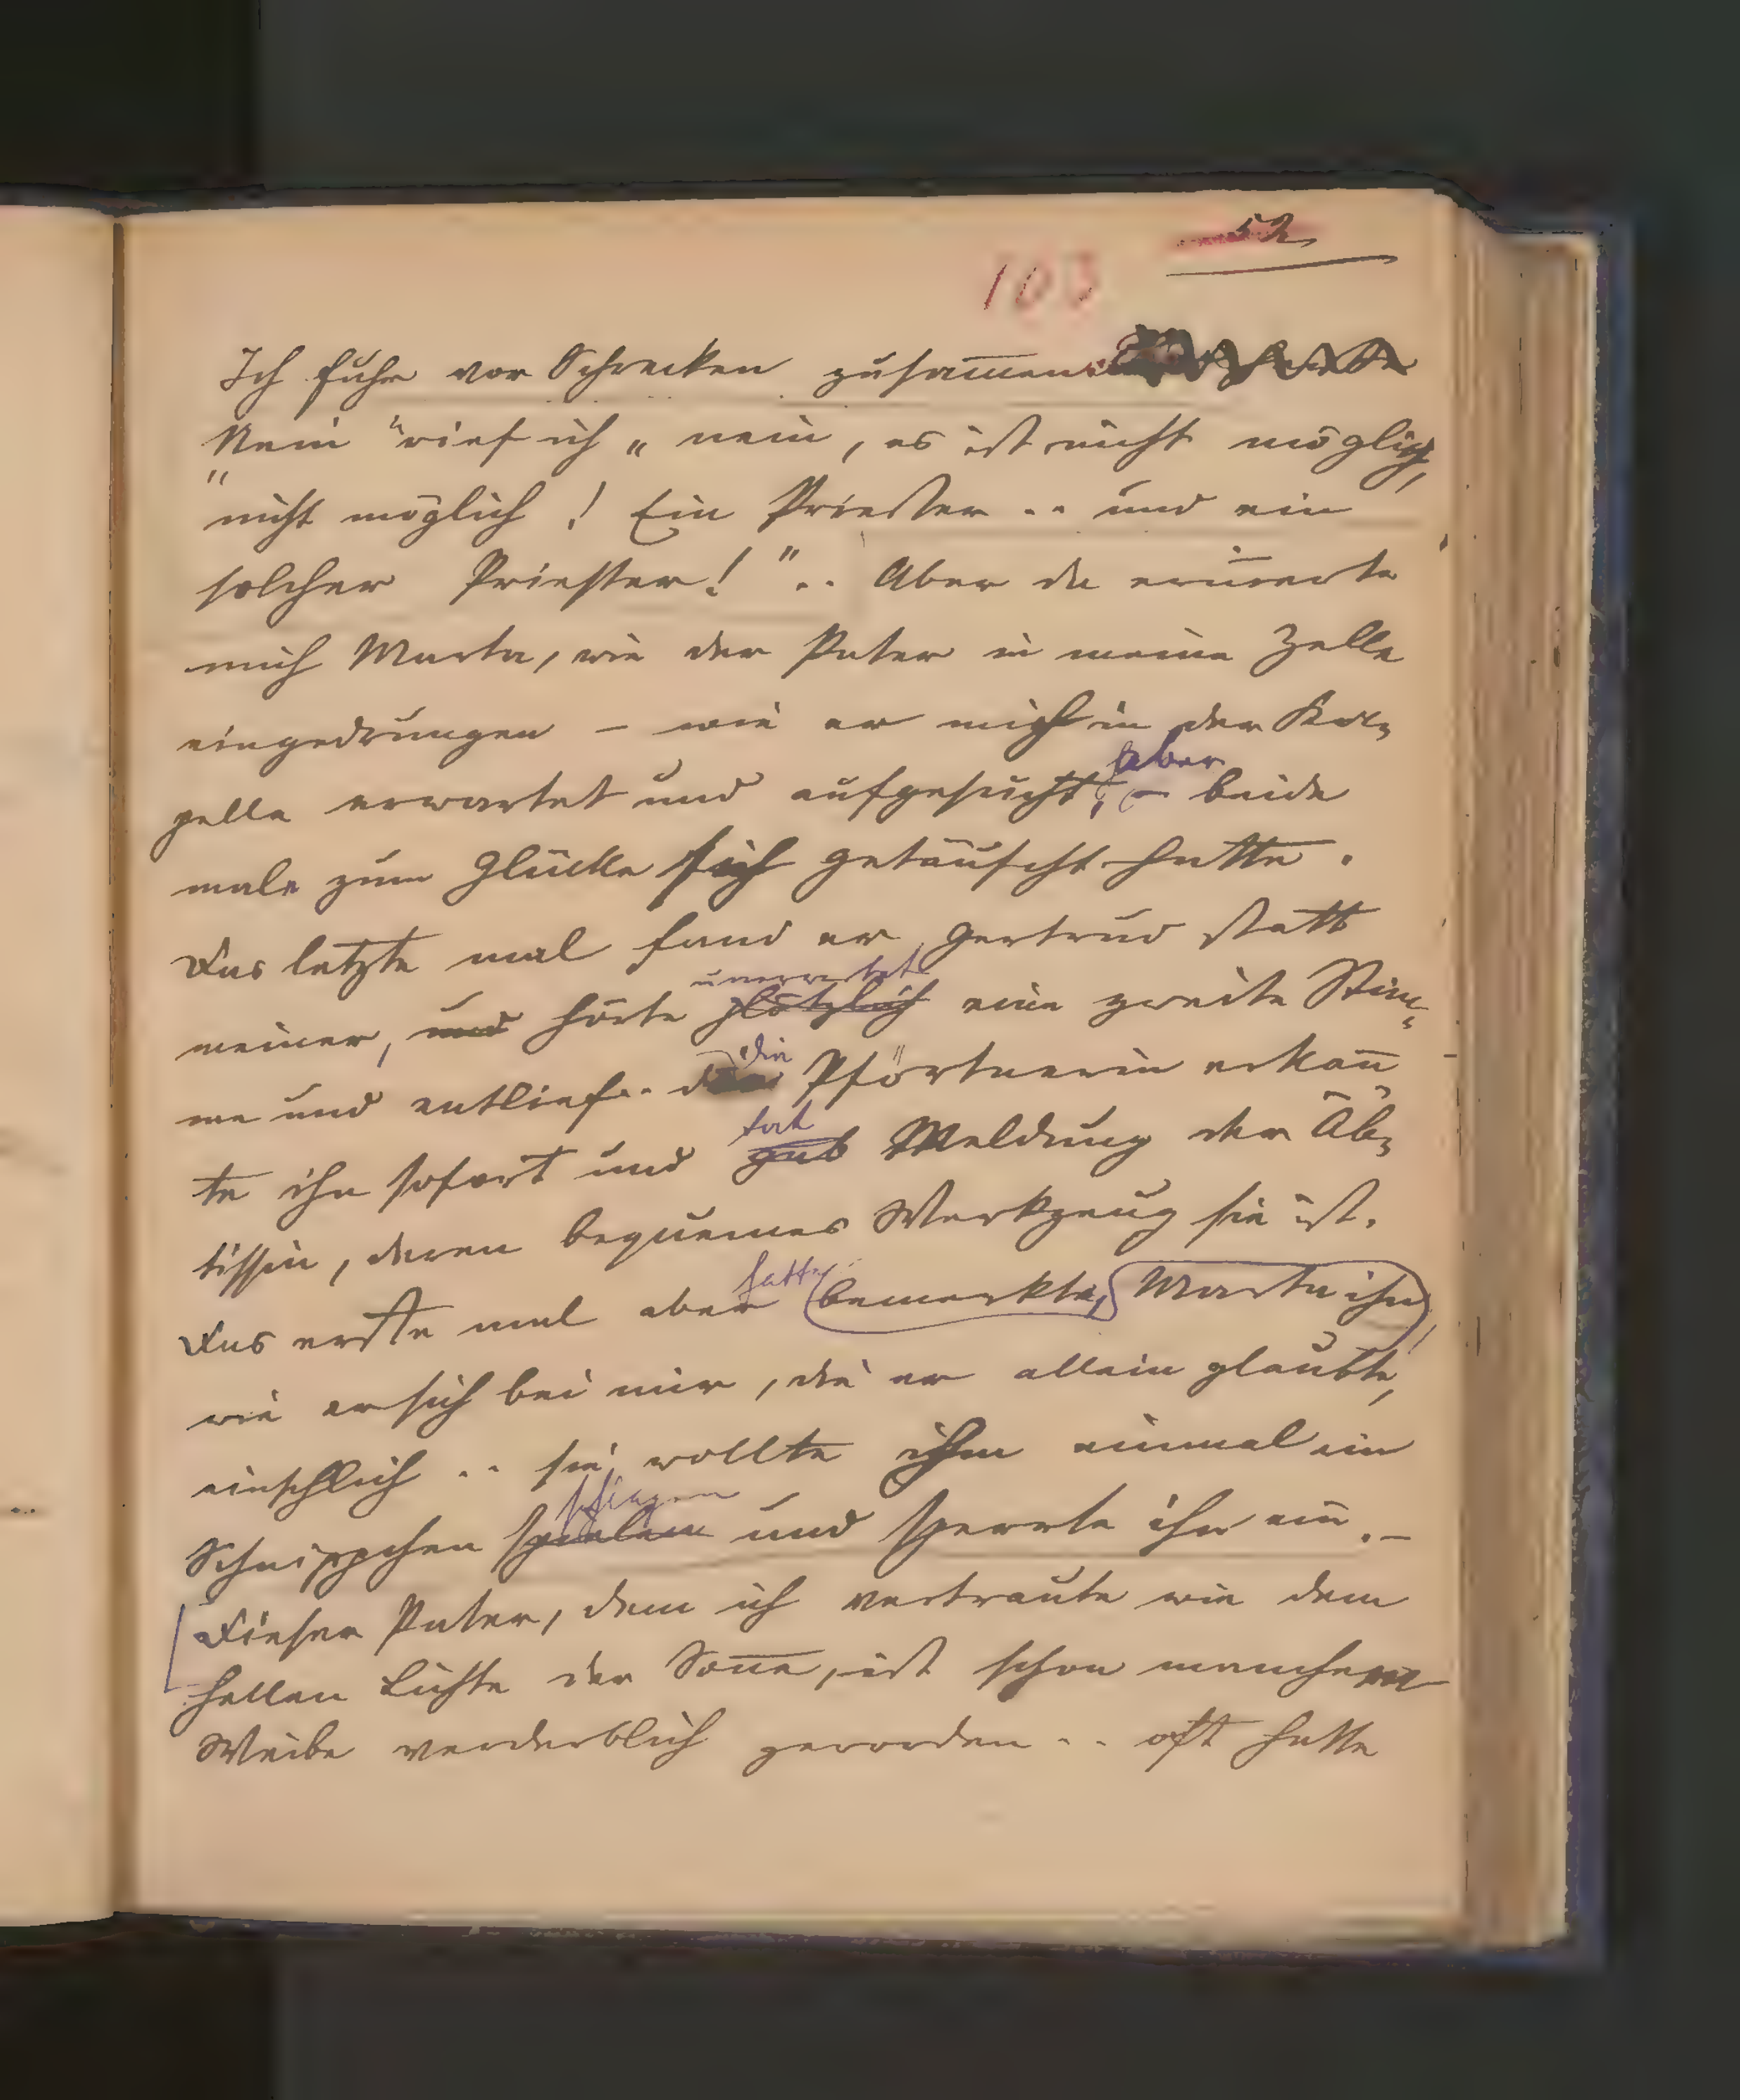 52
103
Ich fuhr vor Schrecken zusam̅en
„Nein“ rief ich „nein, es ist nicht möglich,
nicht möglich! Ein Priester .. und ein
solcher Priester!“ .. Aber da erin̅erte
mich Marta, wie der Pater in meine Zelle
eingedrungen – wie er mich in der Ka-
aber
pelle erwartet und aufgesucht, – beide
male zum Glücke sich getäuscht hatte.
Das letzte mal fand er Gertrud statt
unerwartet
meiner, und hörte plötzlich eine zweite Stim-
die
me und entlief. Pförtnerin erkan̅
tat
te ihn sofort und gab Meldung der Äb-
tissin, deren bequemes Werkzeug sie ist.
hatte
Das erste mal aber bemerkte, Marta ihn
wie er sich bei mir, die er allein glaubte,
einschlich .. sie wollte ihm einmal ein
schlagen
Schnippchen spielen und sperrte ihn ein. –
Dieser Pater, dem ich vertraute wie dem
hellen Lichte der Son̅e, ist schon manchem
Weibe verderblich geworden .. oft hatte